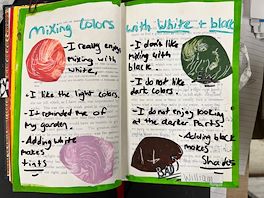 Mixing Colors
- I really enjoy
mixing with
white.
- I like the light colors.
- It reminded me of
my garden.
- Adding white
makes
tints
with white + black
- I don't like
mixing with
black.
- I do not like
dark colors.
- I do not enjoy looking
at the darker parts.
- Adding black
makes
Shades
William